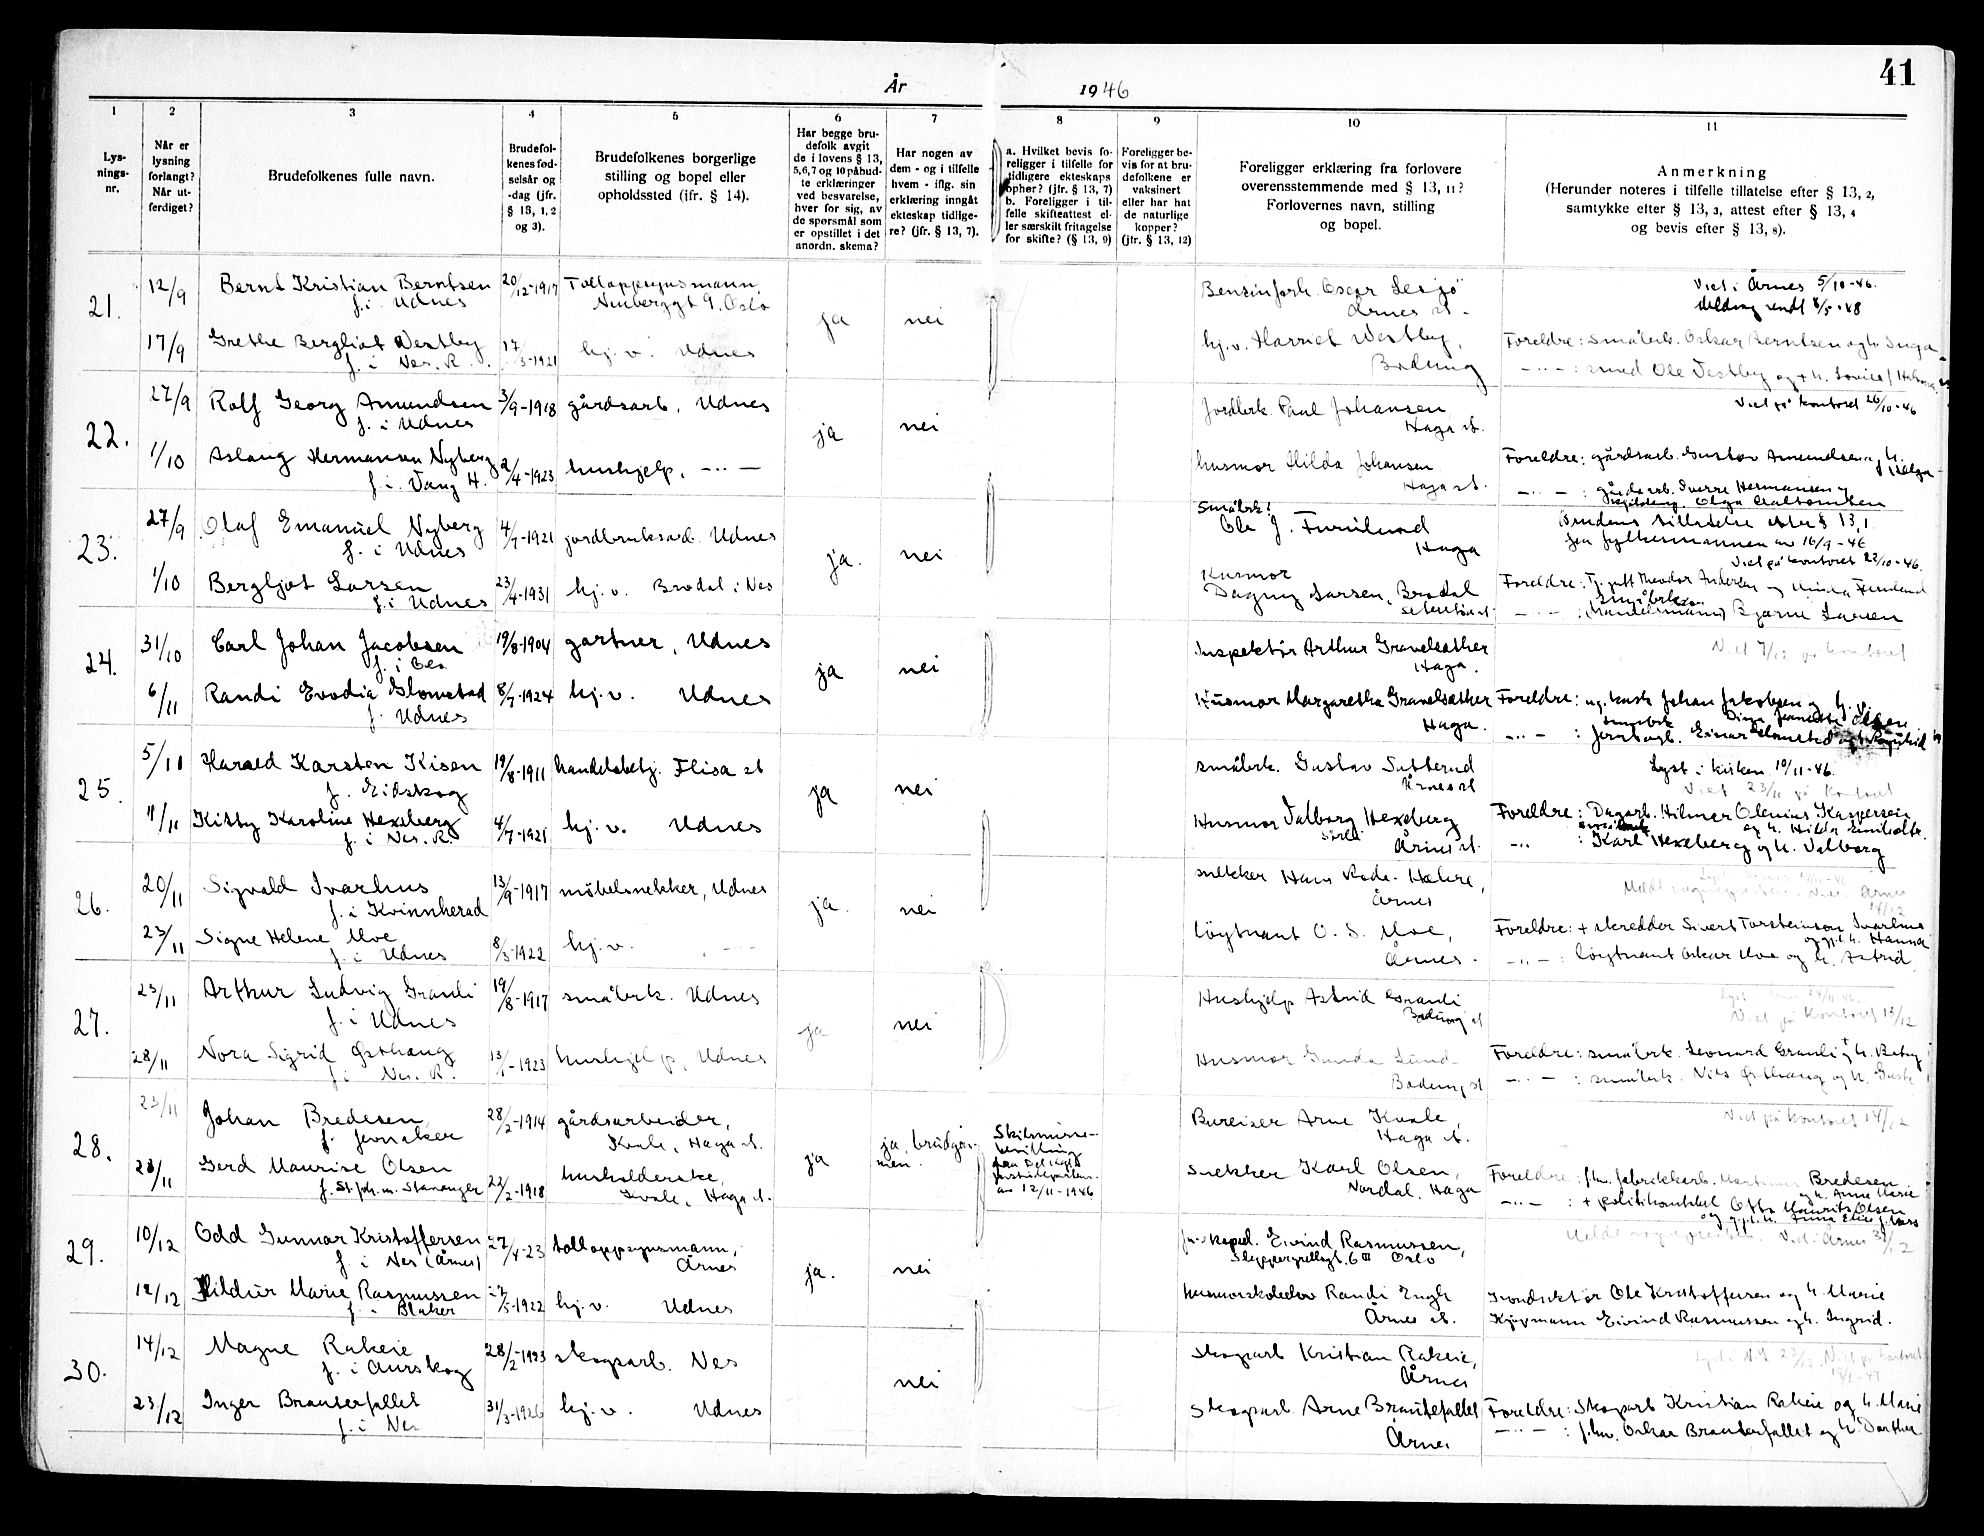 41
År 1946
1 2 3 4 5 6 7 8 9 10 11
Lys-
nings-
nr.
Når er
lysning
forlangt?
Når ut-
ferdiget?
Brudefolkenes fulle navn.
Brudefol-
kenes fød-
selsår og
-dag (jfr.
§ 13, 1, 2
og 3).
Brudefolkenes borgerlige
stilling og bopel eller
opholdssted (ifr. § 14).
Har begge bru-
defolk avgit
de i lovens § 13,
5,6,7 og 10 påbud-
te erklæringer
ved besvarelse,
hver for sig, av
de spørsmål som
er opstillet i det
anordn. skema?
Har nogen av
dem - og i tilfelle
hvem - iflg. sin
erklæring inngåt
ekteskap tidlige-
re? (jfr. § 13, 7).
a. Hvilket bevis fo-
religger i tilfelle for
tidligere ekteskaps
opher? (jfr. § 13, 7)
b. Foreligger i til-
felle skifteattest el-
ler særskilt fritagelse
for skifte? (§ 13, 9)
Foreligger be-
vis for at bru-
defolkene er
vaksinert
eller har hat
de naturlige
kopper?
(jfr. § 13, 12)
Foreligger erklæring fra forlovere
overensstemmende med § 13, 11?
Forlovernes navn, stilling
og bopel.
Anmerkning
(Herunder noteres i tilfelle tillatelse efter § 13, 2,
samtykke efter § 13, 3, attest efter § 13, 4
og bevis efter § 13, 8).
21.
12/9 Bernt Kristian Berntsen 20/12-1917 Tolloppsynsmann,
f. i Udnes 9, Oslo
ja nei
Oscar
Årnes st.
Viet i Årnes 5/10-46.
Meldng sendt 4/5-48
17/9 Grethe Bergliot Vestby 17/3-1921 hj. v. Udnes
f. i Nes. R.
hj. v. Harriet Vestby,
Bodung
Foreldre: småbrk. Oskar Berntsen og h. Inga
— ·· — : smed Ole Vestby og + h. Lovise f.
22.
27/9 Rolf Georg Amundsen 3/9-1918 gårdsarb, Udnes
f. i Udnes
ja nei
Jordbrk. Paul Johansen
Haga st.
Viet på kontoret 26/10-46
1/10 Aslaug Hermansen Nyberg 2/4-1923 hushjelp, — ·· —
f. i. Vang H.
husmor Hilda Johansen
Haga st.
Foreldre: gårdsarb. Gustav Amundsen og h. Helga
— ·· — : gårdsarb. Sverre Hermansen og
Olga
23.
27/9 Olaf Emanuel Nyberg 4/7-1921 jordbruksarb. Udnes
f. i Udnes
ja. nei
Småbrk:
Ole J. Furulund
Haga
Brudens tillatelse etter § 13,1
fra fylkesmannen av 16/9-46
Viet på kontoret 22/10-46.
1/10 Bergljot Larsen 23/4-1931 hj. v. Brodal i Nes
f. i Udnes
Husmor
Dagny Larsen, Brodal
Foreldre: Tj. gutt Theodor Andersen og
— ·· — : Småbrk (Handelsmann) Bjarne Larsen
24.
31/10 Carl Johan Jacobsen 19/8-1904 gartner, Udnes
f. i Oslo
ja nei
Inspektør Arthur Gravelsæther
Haga.
Viet 7/12 på kontoret
6/11 Randi Evodia Glomstad 8/7-1924 hj. v. Udnes
f. Udnes
Husmor Margaretha Gravelsæther
Haga.
Foreldre: ug. kusk Johan Jakobsen og h. v.
Olsen
— ·· — : jernbarb. Einar Glomstad og h. Ragnhild
25.
5/11 Harald Karsten Kisen 19/8-1911 handelsbetj. Flisa st
f. Eidskog
ja nei
småbrk. Gustav Setterud
Årnes st
Lyst i kirken 10/11-46.
Viet 23/11 på kontoret
11/11 Kitty Karoline Hexeberg 4/7-1921 hj. v. Udnes
f. i Nes. R.
Husmor Valborg Hexeberg
Årnes st.
Foreldre: Dagarb. Hilmer Olenius Kaspersen
og h. Hilda
småbruk
— ·· — : Karl Hexeberg og h. Valborg
26.
20/11 Sigvald Ivarhus 13/9-1917 møbelsnekker, Udnes
f. i Kvinnherad
ja. nei
snekker Hans
Årnes
Viet i Årnes
14/12
23/11 Signe Helene Moe 8/3-1922 hj. v. — ·· —
f. i Udnes
löytnant O. S. Moe,
Årnes.
Foreldre: + skredder Sivert Torsteinson Ivarhus
og gj.l. h. Hanna
— ·· — : löytnant Oskar Moe og h. Astrid
27.
23/11 Arthur Ludvig Granli 19/8-1917 småbrk. Udnes
f. i Udnes
ja nei
Hushjelp Astrid Granli
Bodung st
Viet på kontoret 13/12
28/11 Nora Sigrid Østhaug 13/1-1923 hushjelp, Udnes
f. i Nes. R.
Husmor Gunda Lund
Bodung st
Foreldre: småbrk. Leonard Granli og + h.
— ·· — : småbrk. Nils Østhaug og h.
28.
23/11 Johan Bredesen 28/2-1914 gårdsarbeider,
f. Jevnaker Kvale, Haga st.
ja ja, brudgom-
men.
Skilsmisse-
bevilling
fra Det kgl.
Justisdepartem.
av 12/11-1946
Bureiser Arne Kvale,
Haga st.
Viet på kontoret 14/12
28/11 Gerd Maurise Olsen 22/2-1918 husholderske,
f. St. Joh. m. Stavanger Kvale, Haga st.
snekker Karl Olsen,
Nordal, Haga
Foreldre: fhv. fabrikkarb. Bredesen
og h. Anne Marie
— ·· — : + politikonstabel Otto Maurits Olsen
og gj.l. h. Anna Elise f.
29.
10/12 Odd Gunnar Kristoffersen 27/4-23 tolloppsynsmann,
f. i Nes (Årnes) Årnes
ja. nei
Eivind Rasmussen,
6 III Oslo
Viet i Årnes
12/12 Hildur Marie Rasmussen 27/5-1922 hj. v. Udnes
f. i Blaker
husmorskolelev Randi Engh
Årnes st.
Konduktør Ole Kristoffersen og h. Marie
Kjøpmann Eivind Rasmussen og h. Ingrid.
30.
14/12 Magne Rakeie 28/2-1923 skogsarb. Nes
f. i Aurskog
nei
skogsarb Kristian Rakeie,
Årnes
23/12 Inger Brauterfallet 31/3-1926 hj. v. Udnes
f. i Nes
skogsarb Arne Brautefallet
Årnes
Foreldre: skogsarb Kristian Rakeie og h. Marie
— ·· — : fhv. Oskar Brauterfallet og h. Dorthea